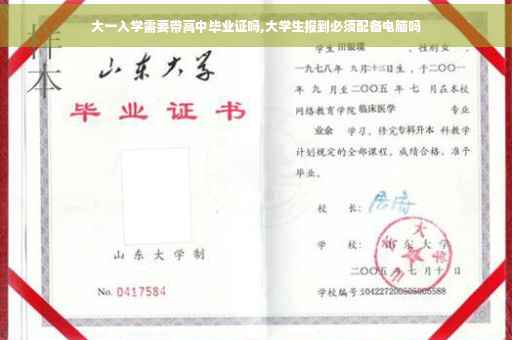 大一入学需要带高中毕业证吗,大学生报到必须配备电脑吗
样本
山东大学
毕业证书
山东大学制
No. 0417584
学生田银瑞 ，性别女 ，
一九七八年 九月十三日生，于二〇〇一
年 九 月至二〇〇五 年 七 月在本校
网络教育学院 临床医学 专业
业余 学习，修完专科升本 科教学
计划规定的全部课程，成绩合格，准予
毕业。
校 长：
学 校： 山 东 大 学
二〇〇五 年 七 月 十 日
学校编号:104227200505005588